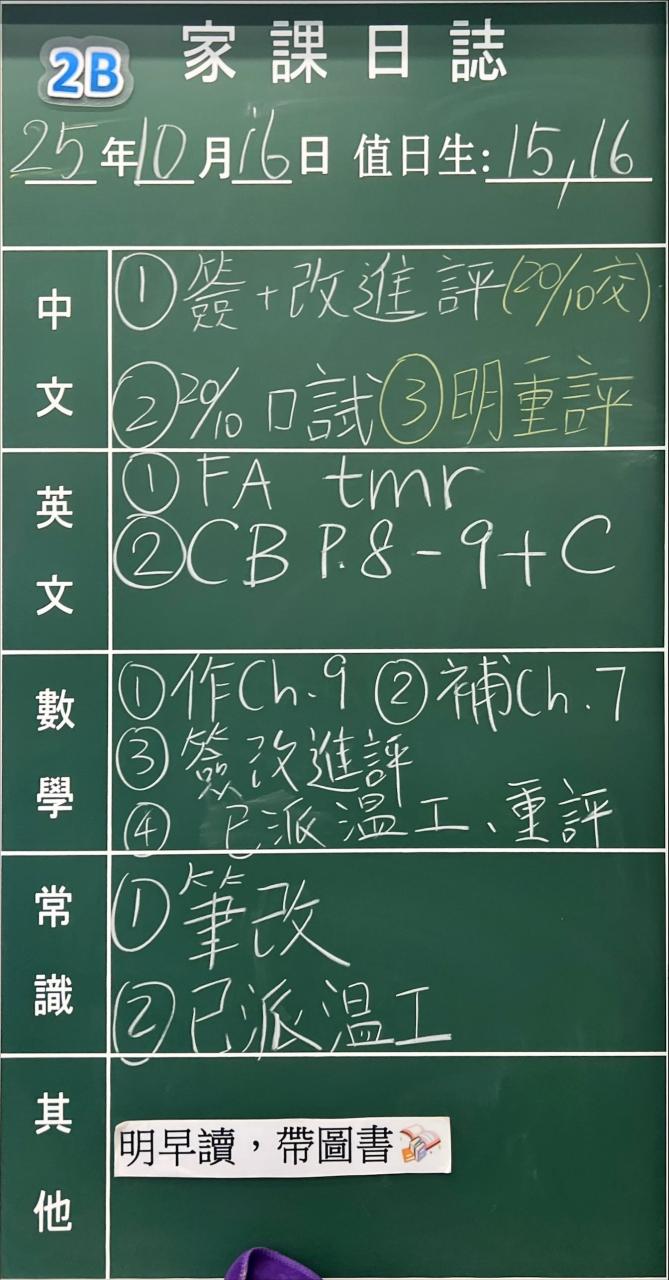 2B 家課日誌
25年10月16日 值日生:15,16
中文
①簽+改進評(20/10交)
②20/10 口試 ③明重評
英文
① FA tmr
② CB P.8-9+C
數學
①作Ch.9 ②補Ch.7
③簽改進評
④ 已派温工、重評
常識
①筆改
②已派温工
其他
明早讀，帶圖書